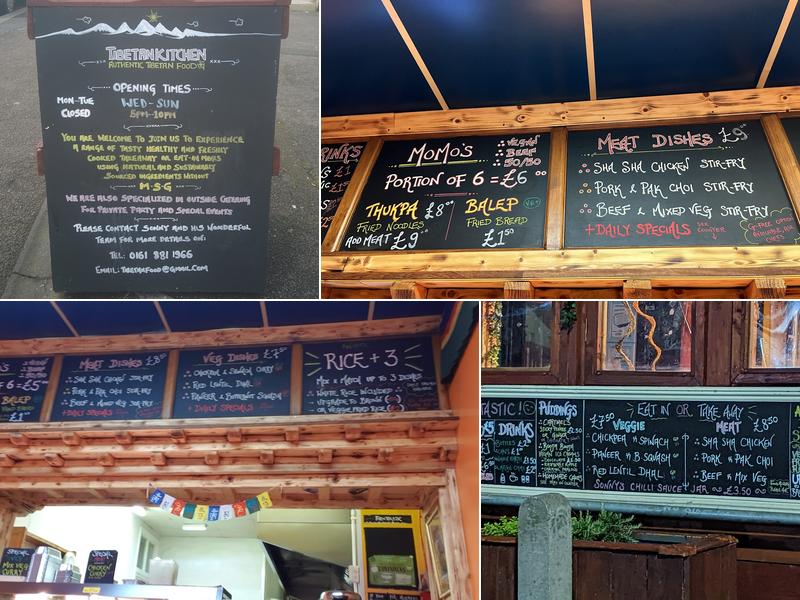 TIBETAN KITCHEN
AUTHENTIC TIBETAN FOOD
OPENING TIMES
MON-TUE
CLOSED
WED-SUN
5PM-10PM
YOU ARE WELCOME TO JOIN US TO EXPERIENCE
A RANGE OF TASTY HEALTHY AND FRESHLY
COOKED TAKEAWAY OR EAT-IN MEALS
USING NATURAL AND SUSTAINABLY
SOURCED INGREDIENTS WITHOUT
M·S·G
WE ARE ALSO SPECIALIZED IN OUTSIDE CATERING
FOR PRIVATE PARTY AND SPECIAL EVENTS
PLEASE CONTACT SONNY AND HIS WONDERFUL
TEAM FOR MORE DETAILS ON:
TEL: 0161 881 1966
EMAIL: TIBETANFOOD@GMAIL.COM
MOMO'S
VEGAN
BEEF
50/50
PORTION OF 6 = £6.00
THUKPA £8.00
FRIED NOODLES
ADD MEAT £9
BALEP VEG
FRIED BREAD
£1.50
MEAT DISHES £9
SHA SHA CHICKEN STIR-FRY
PORK & PAK CHOI STIR-FRY
BEEF & MIXED VEG STIR-FRY
+DAILY SPECIALS
SEE COUNTER
= £5
BALEP
MEAT DISHES
SHA SHA CHICKEN STIR-FRY
PORK & PAK CHOI STIR-FRY
BEEF & MIXED VEG STIR-FRY
+DAILY SPECIALS
VEG DISHES
CHICKPEA & SPINACH CURRY
RED LENTIL DHAL
PANEER & BUTTERNUT SQUASH
+DAILY SPECIALS
RICE + 3
MIX & MATCH UP TO 3 DISHES
WHITE RICE INCLUDED
UPGRADE TO BROWN
OR VEGGIE FRIED RICE
SPECIAL
MIX VEG
CURRY
SPECIAL
CHICKEN
CURRY
DRINKS
PUDDINGS
EAT IN OR TAKE AWAY
£7.50
VEGGIE
CHICKPEA N SPINACH
PANEER N B.SQUASH
RED LENTIL DHAL
MEAT £8.50
SHA SHA CHICKEN
PORK N PAK CHOI
BEEF N MIX VEG
SONNY'S CHILLI SAUCE JAR £3.50